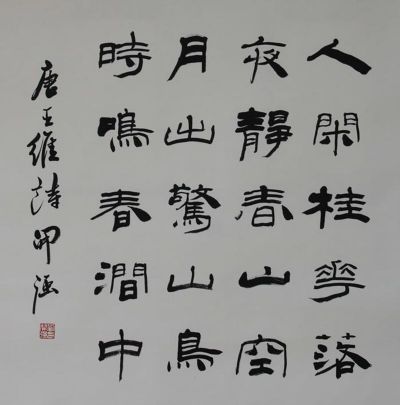 人閑桂花落
夜靜春山空
月出驚山鳥
時鳴春澗中
唐王維詩